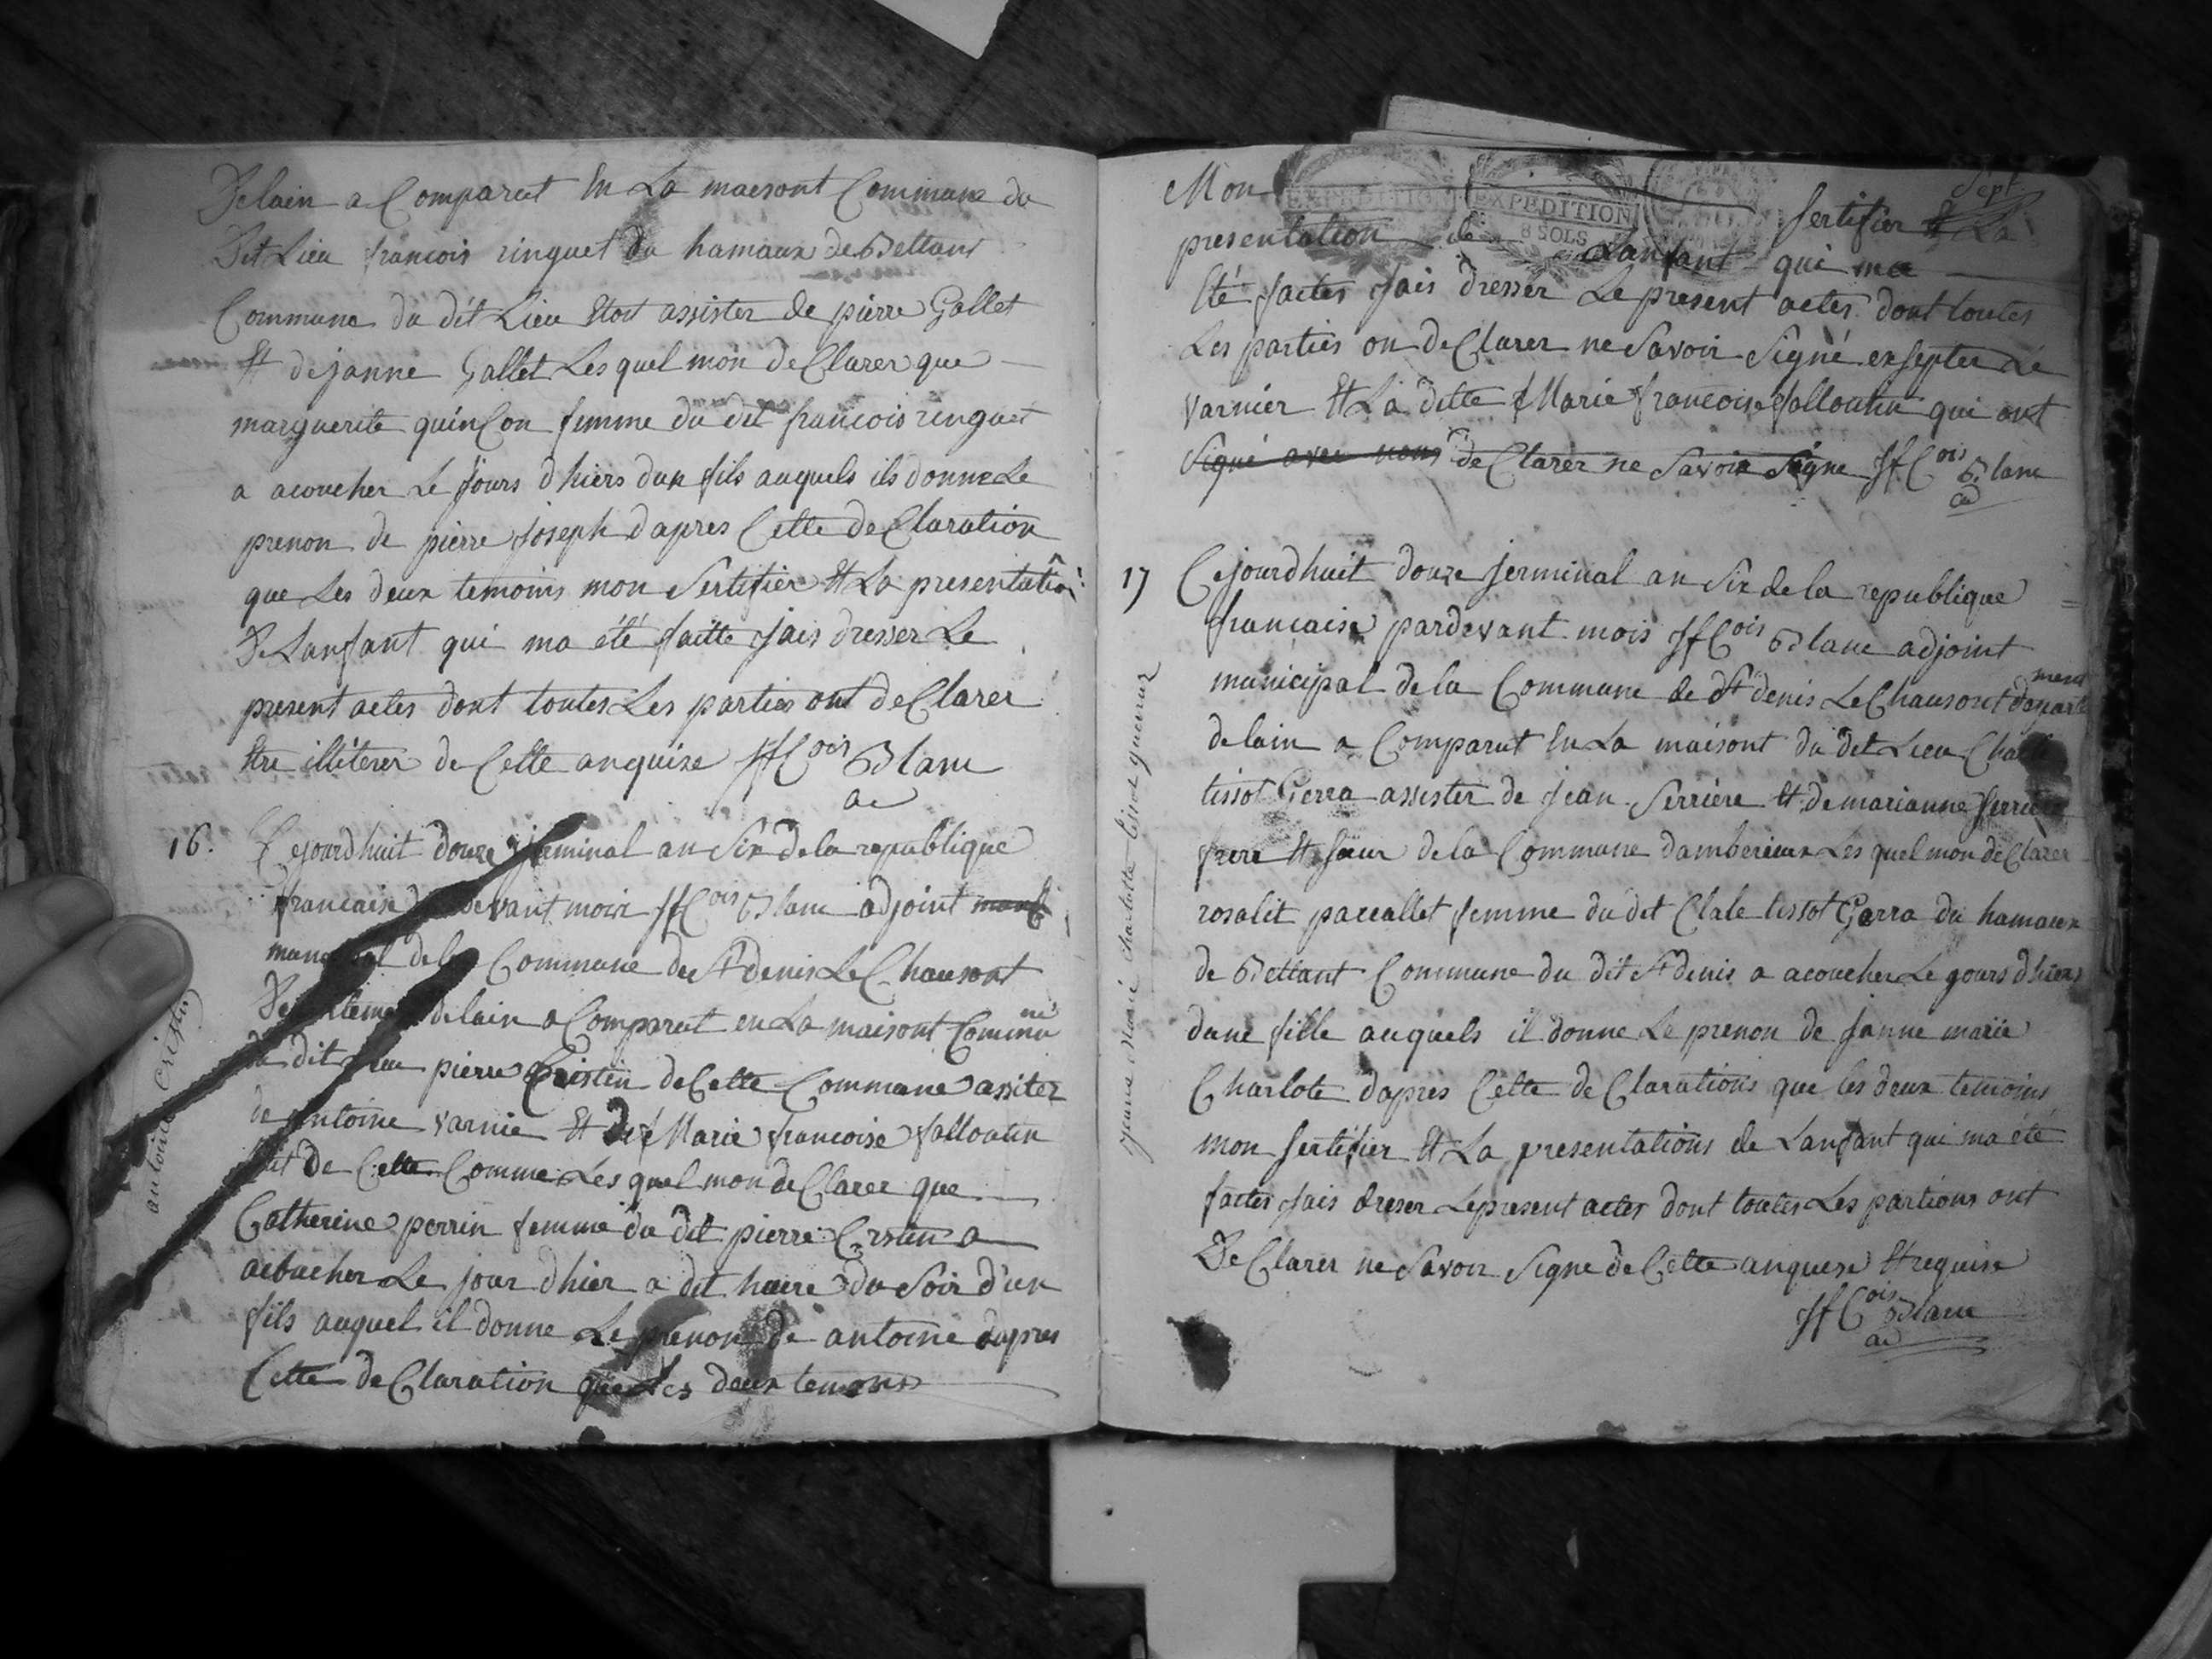 Delain a Comparut En La maesont Commune du
Dit Lieu francois ringuet du hamaux de Bettant
Commune du dit Lieu Etoit assister de pierre Gallet
Et de janne Gallet Les quel mon de Clarer que
marguerite quinson femme du dit francois ringuet
a acoucher Le jours dhiers dun fils auquels ils donne Le
prenon de pierre joseph dapres Cette de Claration
que Les deux temoins mon Sertifier Et La presentation
De Lanfant qui ma été faitte jais dresser Le
present actes dont toutes Les parties ont de Clarer
Etre illiterer de Cette anquise JfCois Blanc
ac
16. Cejourdhuit douze jerminal an Six de la republique
francaise devant moix JfCois Blanc adjoint
de la Commune de St denis Le Chausont
delain a Comparut en La maisont Commune
dit Lieu pierre Cristin de Cette Commune assiter
de antoine varnie Et De Marie francoise falloutin
de Cette Comme Les quel mon de Clarer que
Catherine perrin femme du dit pierre Cristin a
acoucher Le jour dhier a dit heure du Soir d'un
fils auquel il donne Le prenon de antoine dapres
Cette de Claration que Les deux temoins
antoine Cristin
Sept
Mon Sertifier Et La
EXPEDITION
EXPEDITION
8 SOLS
presentation de Lanfant qui ma
Eté faites jais dresser Le present actes dont toutes
Les parties on de Clarer ne Savoir Signé exsepter Le
varnier Et La ditte Marie francoise falloutin qui ont
Signé avec nous de Clarer ne Savoir Signe JfCois Blanc
ac
17 Cejourdhuit douze jerminal an Six de la republique
francaise pardevant mois JfCois Blanc adjoint
municipal de la Commune de St denis Le Chausont departement
delain a Comparut En La maisont du dit Lieu
tissot Gerra assister de jean Serriere Et de marianne Serriere
frere Et Sœur de la Commune damberieux Les quel mon de Clarer
rosalit paccallet femme du dit Clale tissot Gerra du hamaux
de Bettant Commune du dit St denis a acoucher Le gours dhiers
dune fille auquels il donne Le prenon de janne marie
Charlote dapres Cette de Clarations que les deux temoins
mon Sertifier Et La presentations de Lanfant qui ma été
faites jais dreser Le present actes dont toutes Les partions ont
De Clarer ne Savoir Signe de Cette anquese Et requise
JfCois Blanc
ac
jeanne Marie Charlotte tissot